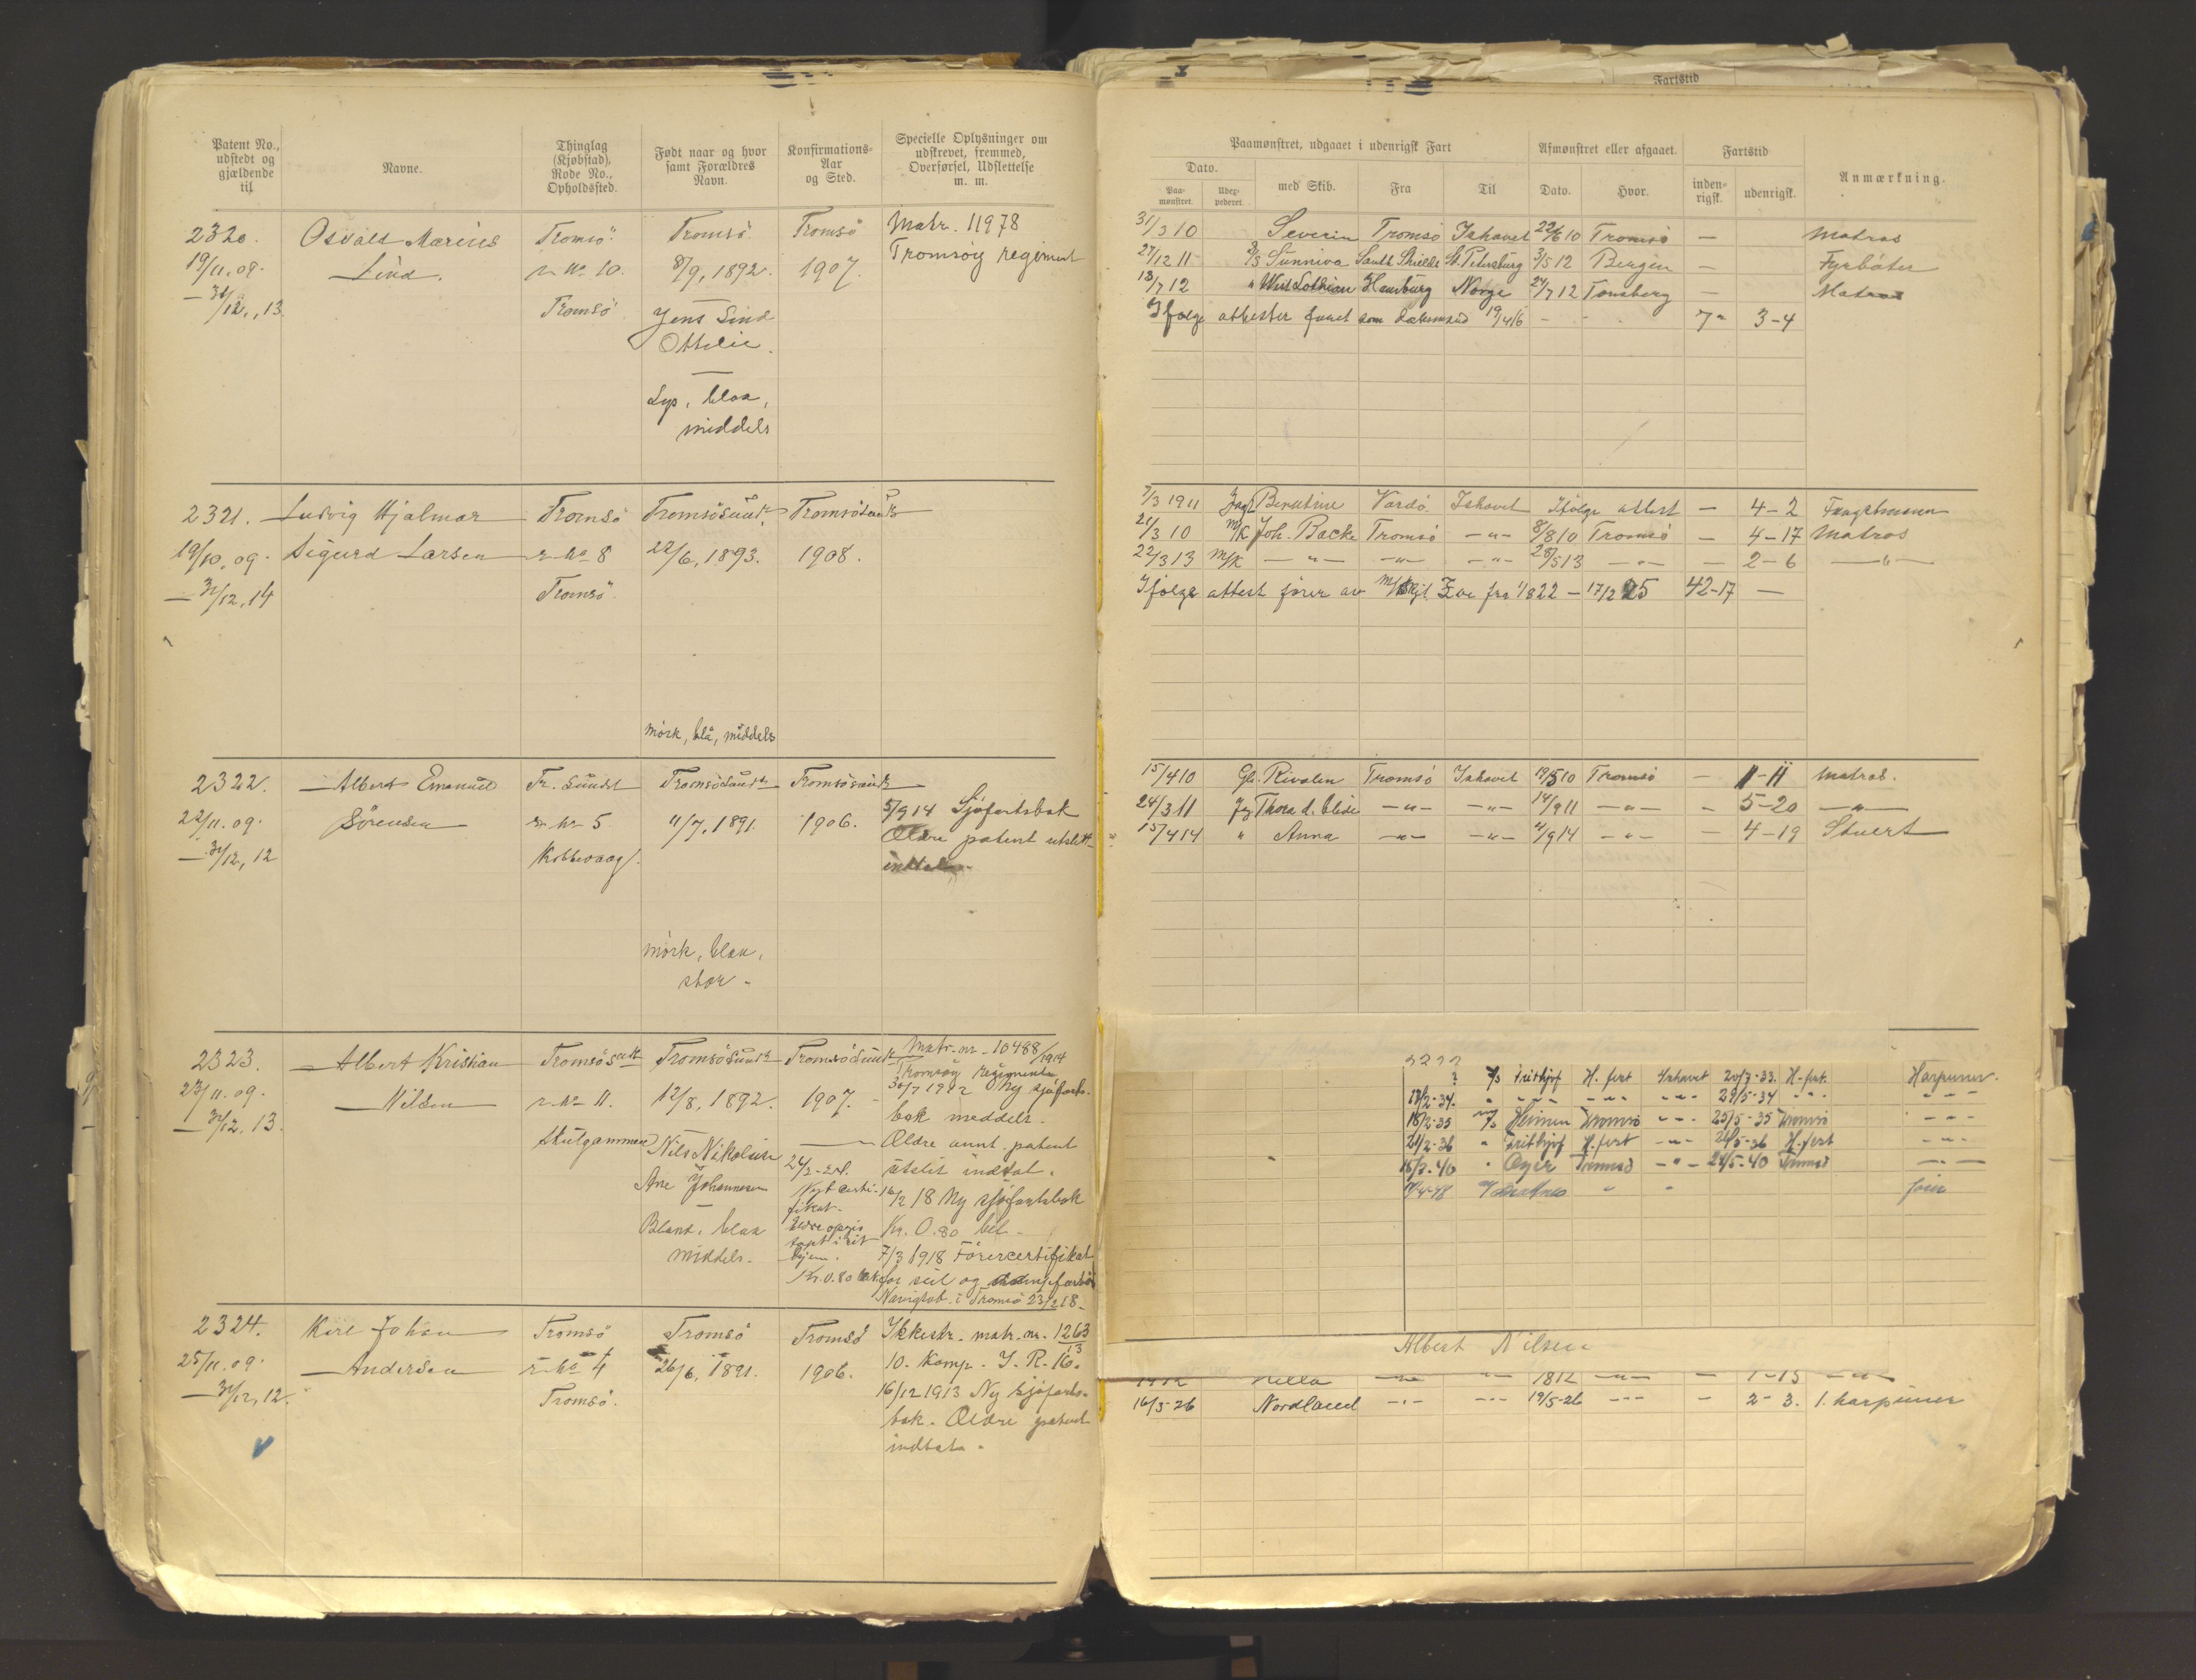 Patent No., udstedt og gjældende til
Navne.
Thinglag (Kjøbstad). Rode No., Opholdssted.
Født naar og hvor samt Forældres Navn.
Konfirmations-Aar og Sted.
Specielle Oplysninger om udskrevet, fremmed, Overførsel, Udslettelse m. m.
2320.
19/11.09.
— 31/12., 13.
Osvald Marius
Lind.
Tromsö
r. No 10.
Tromsö
Tromsö
8/9, 1892.
Jens Lind
Ottelie.
Lys, blaa,
middels
Tromsö
1907.
Matr. 11978
Tromsøy regiment
2321.
19/10, 09.
— 31/12, 14
Ludvig Hjalmar
Sigurd Larsen
Tromsö
r. No 8
Tromsö
Tromsösund
22/6, 1893.
mörk, blå, middels
Tromsösund
1908.
2322.
22/11.09.
— 31/12, 12
Albert Emanuel
Sörensen
Tr. Sundet
r. No 5
Kobbevaag.
Tromsösund
11/7, 1891.
mörk, blaa,
stor -
Tromsösund
1906.
5/9 14 Sjøfartsbok
Ældre patent utslitt
2323.
23/11.09.
— 31/12, 13.
Albert Kristian
Nilsen
Tromsösund
r. No 11.
Skulgammen
Tromsösund
12/8, 1892.
Nils Nikolaisen
Ane Johannesen
Bland, blaa
middels.
Tromsösund
1907.
24/2-21.
Nyt certi-
fikat.
Kr. 0.80
Matr. nr. 10488/1914
Tromsøy regiment
30/7 1912 Ny sjøfarts-
bok meddelt.
Ældre annt. patent
utslit indtat.
16/2 18 Ny sjøfartsbok
Kr. 0.80 bet.
7/3 1918 Förercertifikat
for seil og
Navigtsb. i Tromsö 23/2 18.
2324.
25/11.09.
— 31/12, 12.
Karl Johan
Andersen
Tromsö
r. No 4
Tromsö.
Tromsö
26/6, 1891.
Tromsö
1906.
Ikkestr. matr. nr. 1263/13
10. Komp. I. R. 16.
16/12 1913 Ny sjøfarts-
bok. Ældre patent
indtat.
Fartstid
Paamønstret, udgaaet i udenrigsk Fart
Afmønstret eller afgaaet.
Fartstid
Anmærkning.
Dato.
Paa-mønstret.
Udez-pederet.
med Skib.
Fra
Til
Dato.
Hvor.
inden-rigsk.
udenrigsk.
31/3 10 Severin Tromsö Ishavet 22/6 10 Tromsö — Matros
27/12 11 S/S Sunniva South Shields St. Petersburg 3/5 12 Bergen — Fyrbøter
13/7 12 " West Lothian Hamburg Norge 24/7 12 Tønsberg — Matros
Ifølge attester faret som 19/4 16 — 7 " 3-4
7/3 1911 Jagt Berntine Vardö Ishavet Ifølge attest — 4-2 Fangstmann
21/3 10 M/K Joh. Backe Tromsö — " — 8/8 10 Tromsö — 4-17 Matros
22/3 13 M/K — " — — " — — " — 28/5 13 — " — — 2-6 — " —
Ifølge attest förer av Eva fra 1/8 22 — 17/2 25 42-17 —
15/4 10 Gl. Rivalen Tromsö Ishavet 19/5 10 Tromsö — 1-11 Matros.
24/3 11 Jg Thora d. blide — " — — " — 14/9 11 — " — — 5-20 — " —
15/4 14 " Anna — " — — " — 4/9 14 — " — — 4-19 Stuert
? S/S Frithjof H. fest Ishavet 20/7-33. H-fest. Harpuner.
18/2-34. " — " — — " — — " — 29/5-34 — " — — " —
18/2-35 M/S Heimen Tromsö — " — 25/5-35 Tromsö — " —
21/2-36 " Frithjof H. fest — " — 26/5-36 H. fest — " —
15/3-40 " Tromsö — " — 24/5-40 Tromsö — " —
Albert Nilsen
16/3-26 Nordland — " — — " — 19/5-26 — " — — 2-3. 1. harpuner